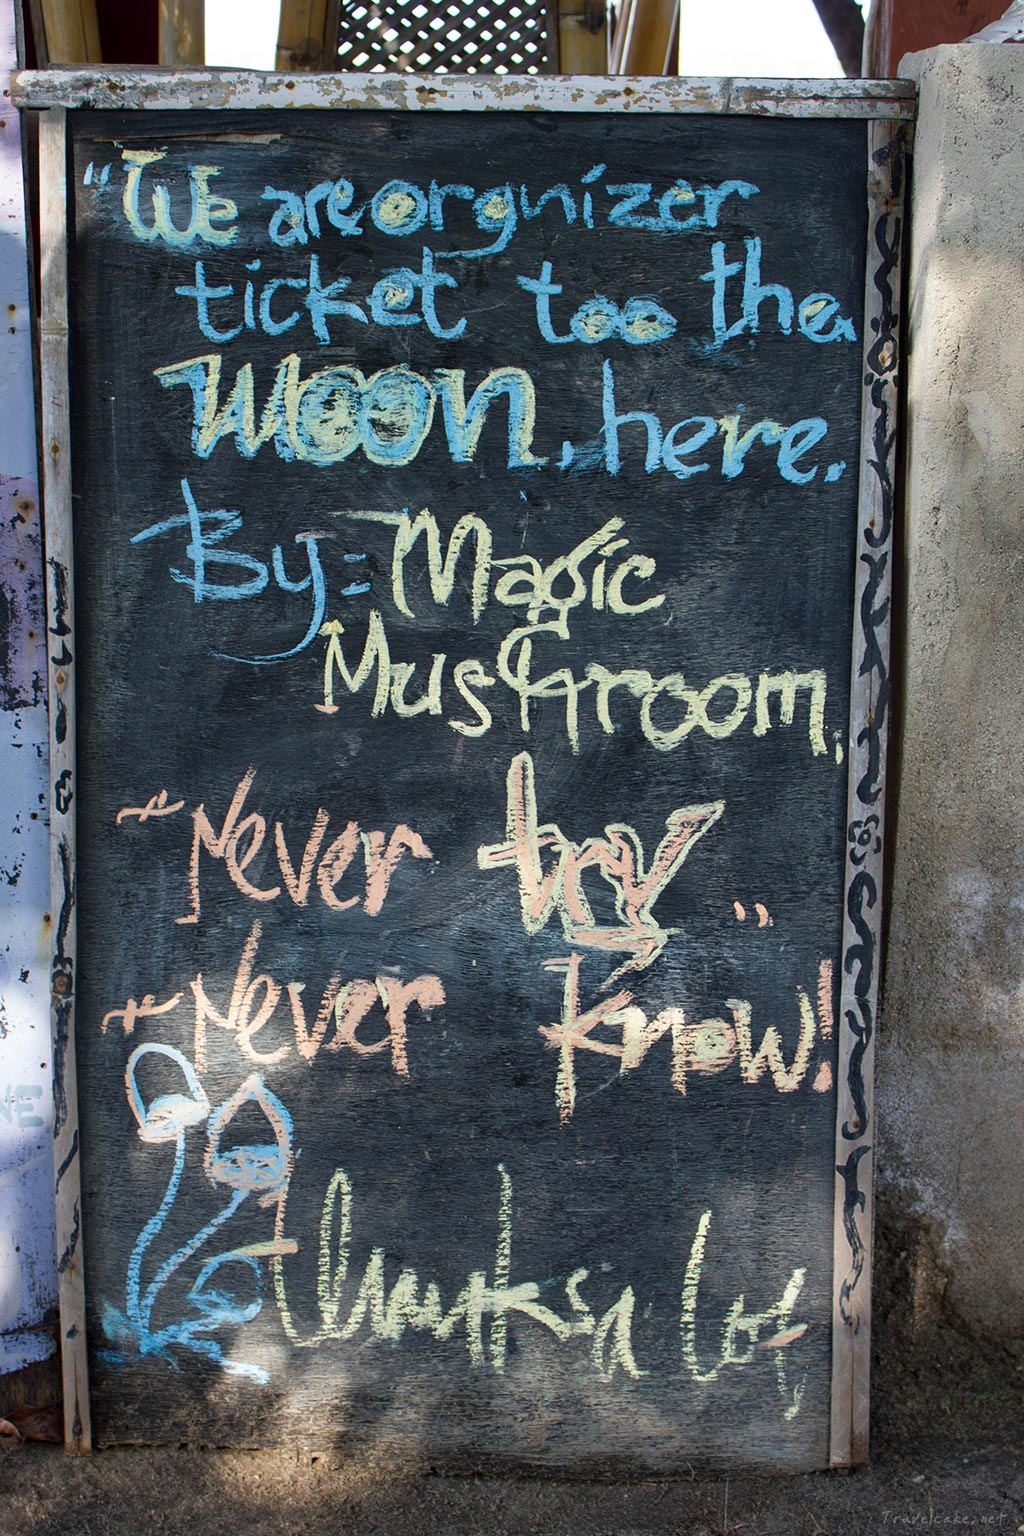 "We are orgnizer
ticket too the
Moon, here.
By: Magic
Mushroom,
~ Never try "
~ Never know!
Thanks a lot,
Travelcake.net